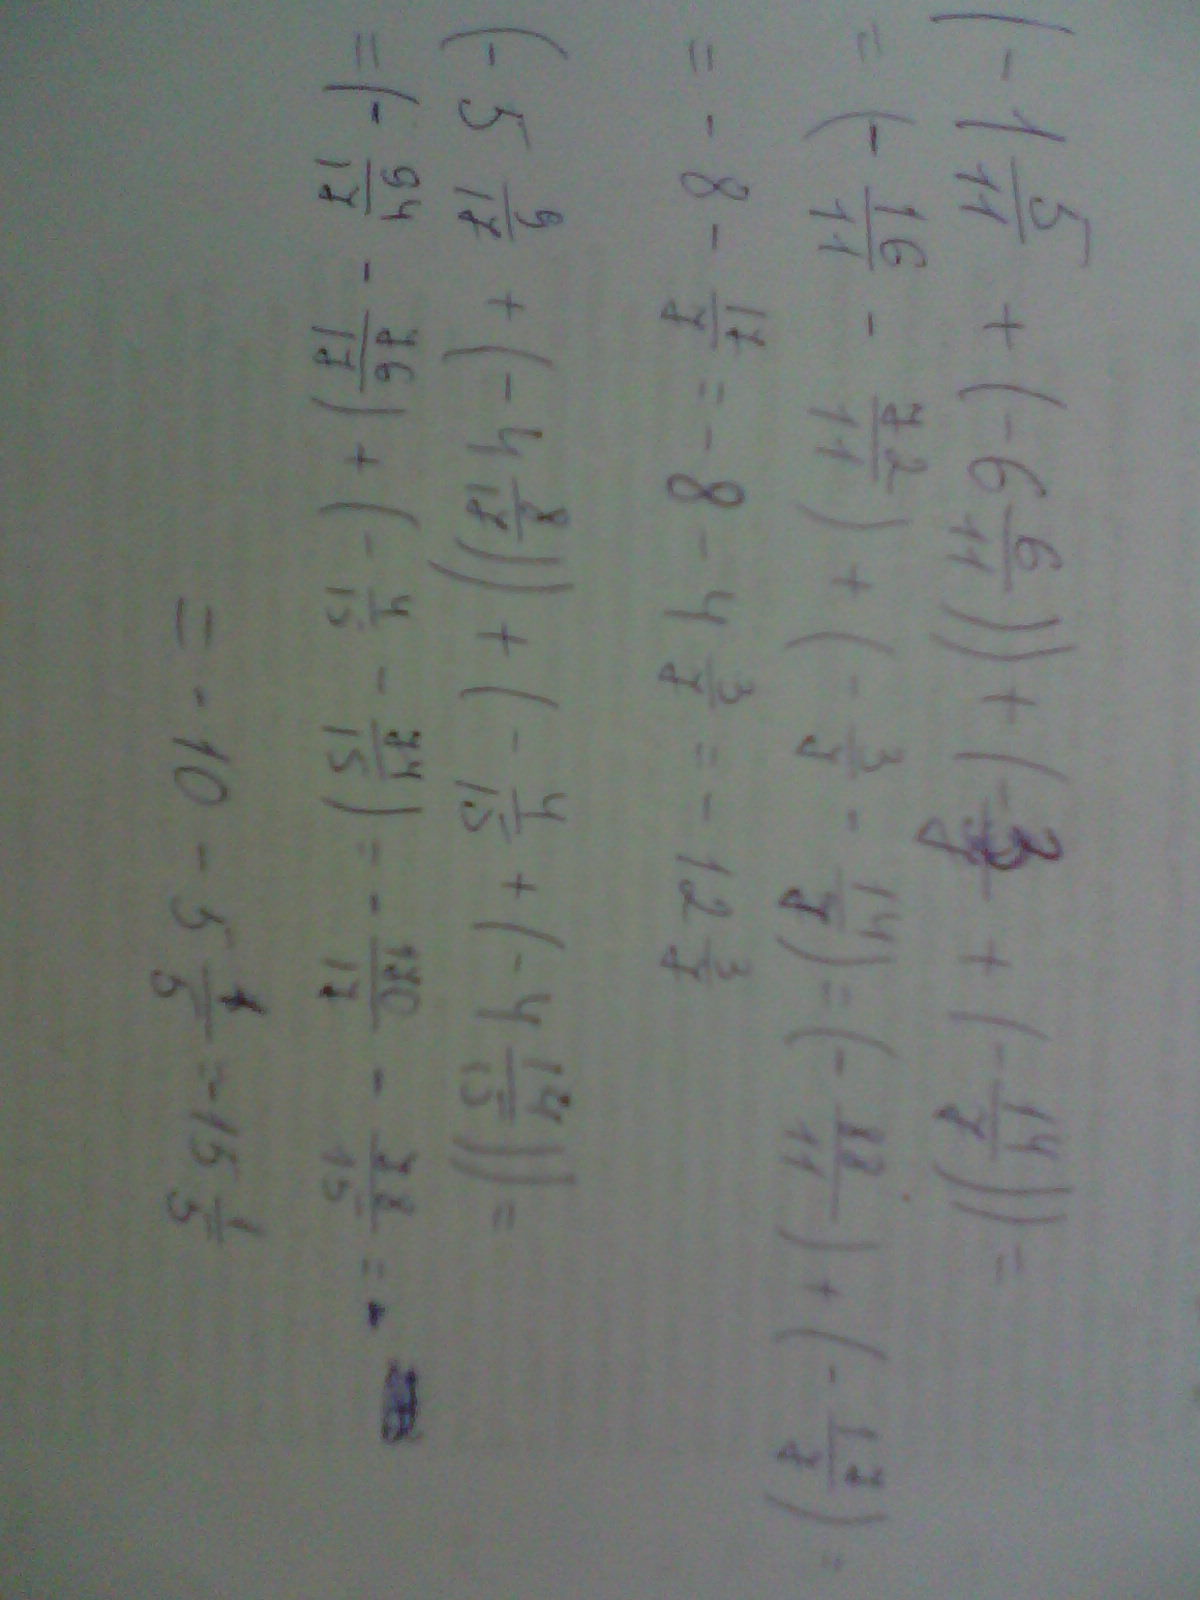 (-1 5/11 + (-6 6/11)) + (-3/7 + (-14/7)) =
= (-16/11 - 72/11) + (-3/7 - 14/7) = (-88/11) + (-17/7) =
= -8 - 17/7 = -8 - 4 3/7 = -12 3/7
(-5 9/17 + (-4 8/17)) + (-4/15 + (-4 14/15)) =
= (-94/17 - 76/17) + (-4/15 - 74/15) = -170/17 - 78/15 = -
= -10 - 5 1/5 = -15 1/5